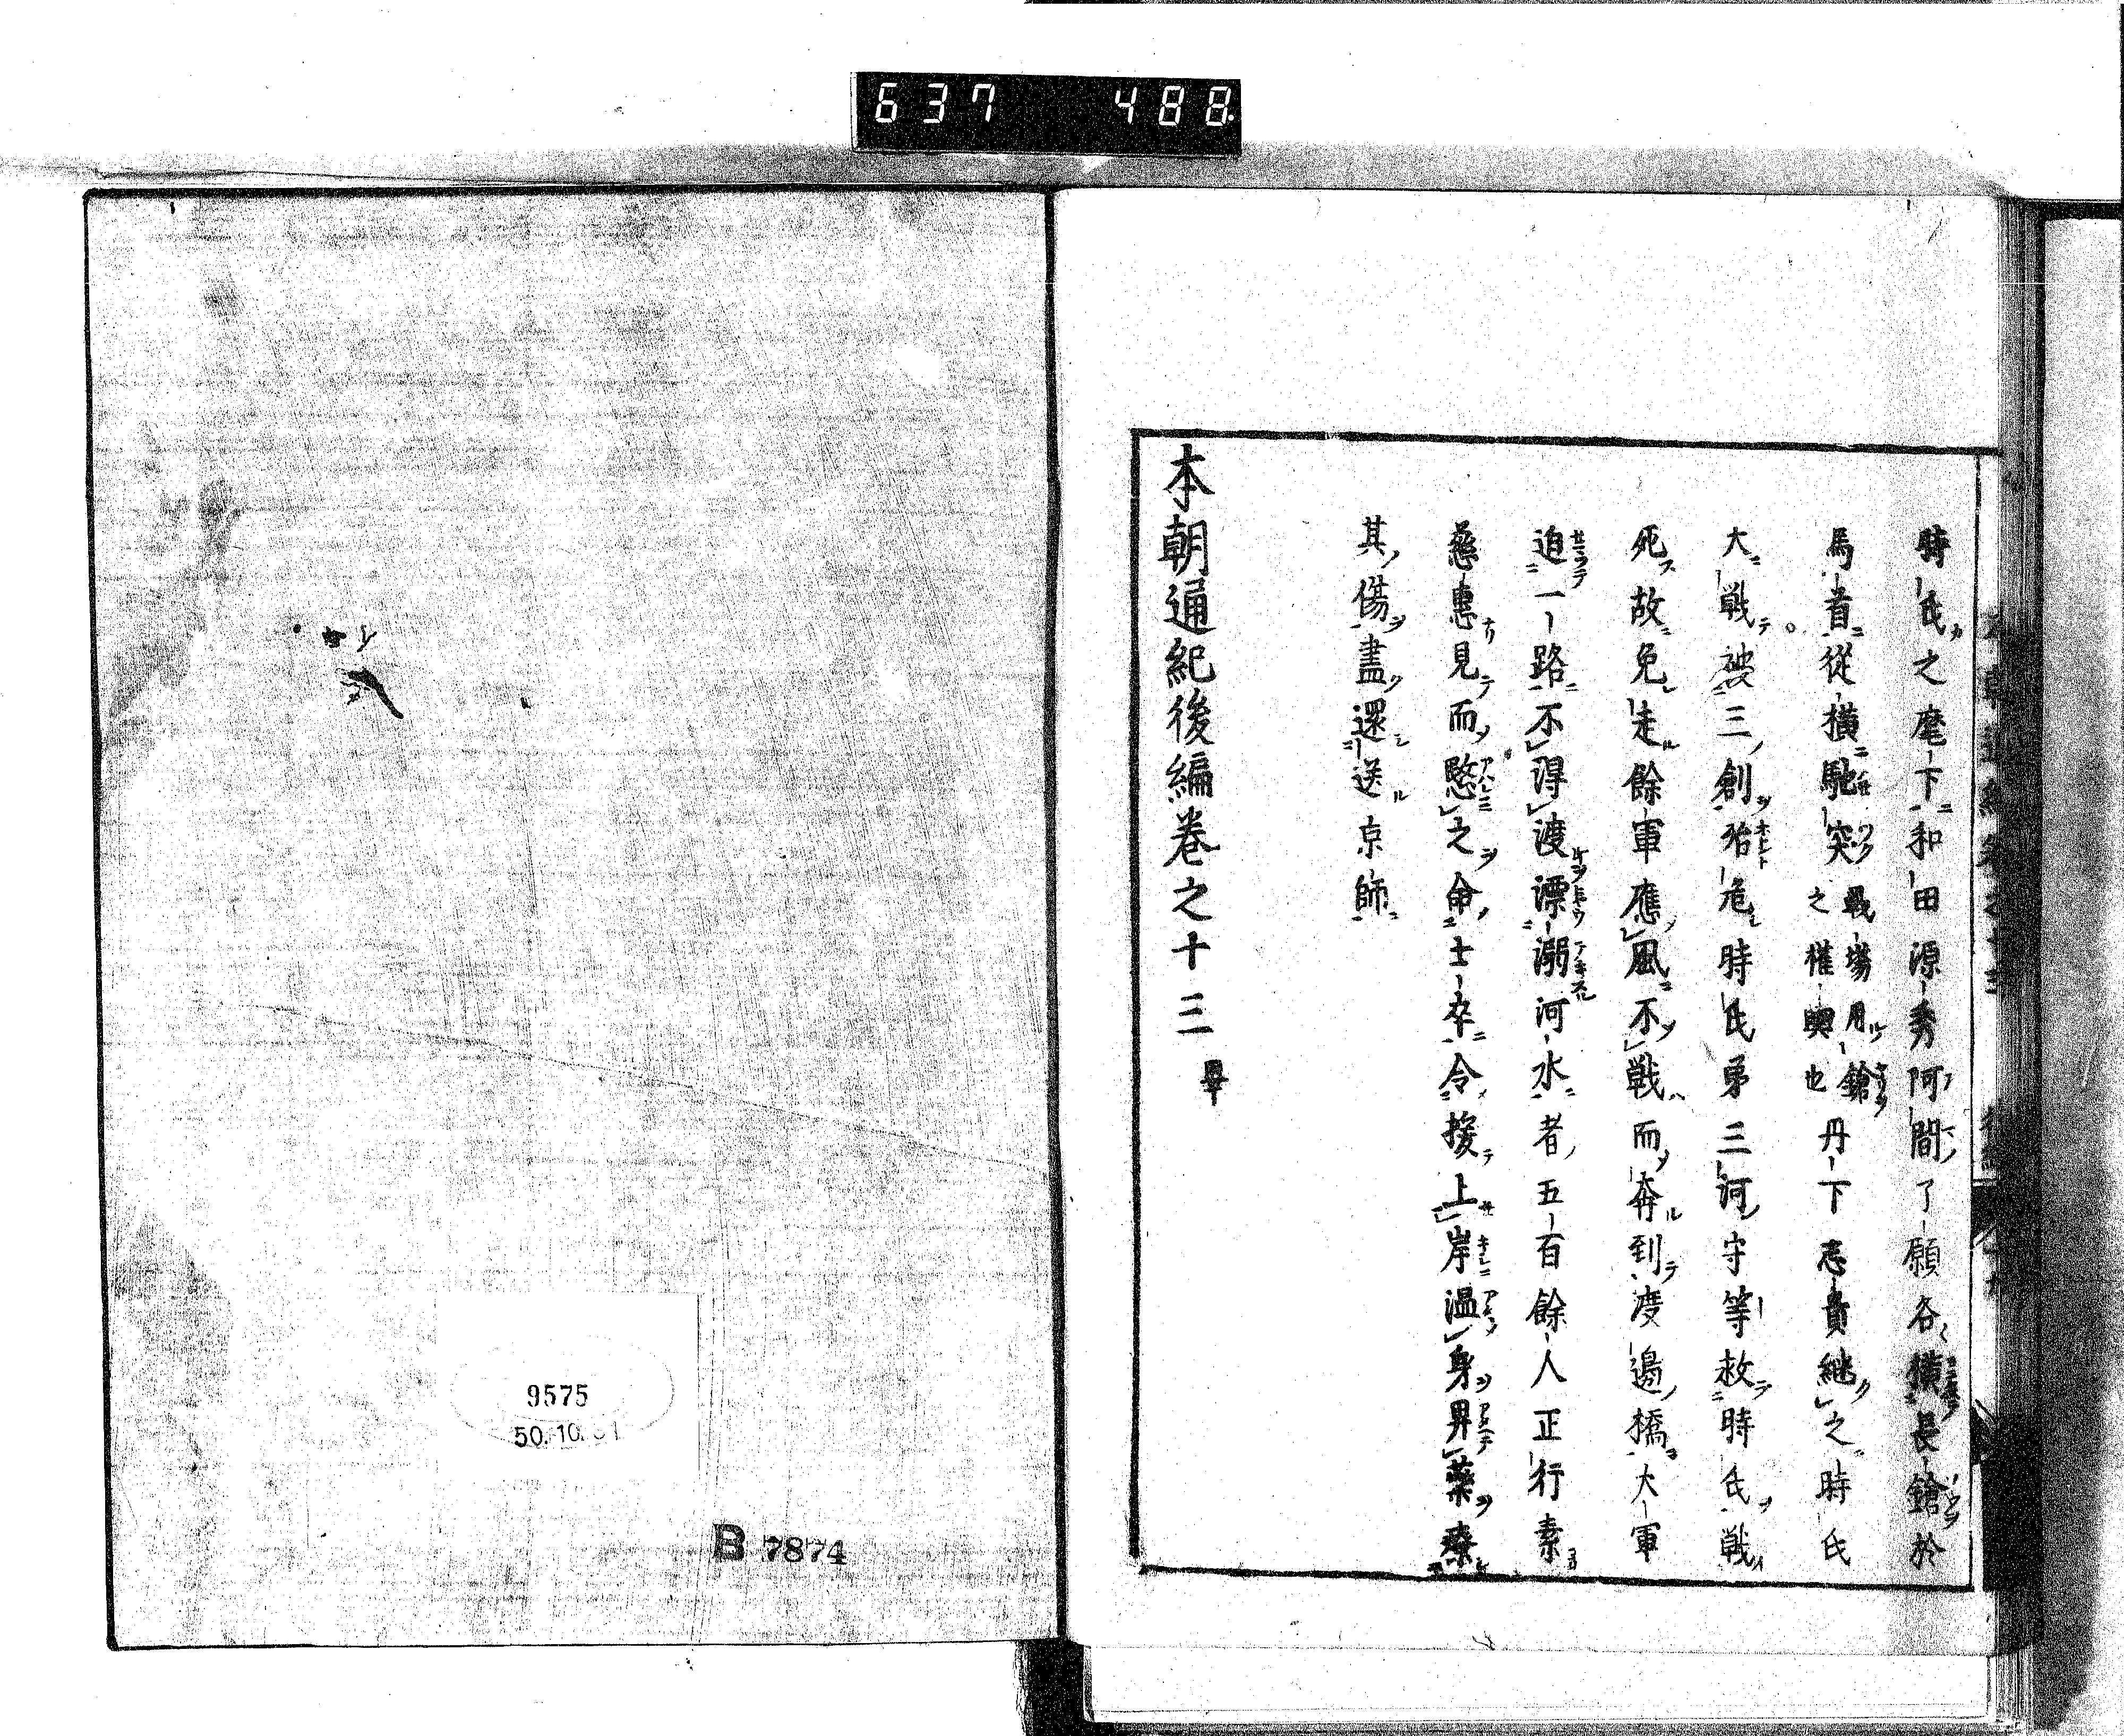 637 488
時氏之麾下和田源秀阿間了願各横長鎗於
馬首從横馳突戰場用鎗之權輿也丹下忠貴継之時氏
大戦被三創殆危時氏弟三河守等救時氏戦
死故免走餘軍應風不戦而奔到渡邊橋大軍
迫一路不得渡漂溺河水者五百餘人正行素
慈恵見而愍之命士卒令援上岸温身畀藥療
其傷盡還送京師
本朝通紀後編巻之十三 畢
9575
50.10.
B 7874